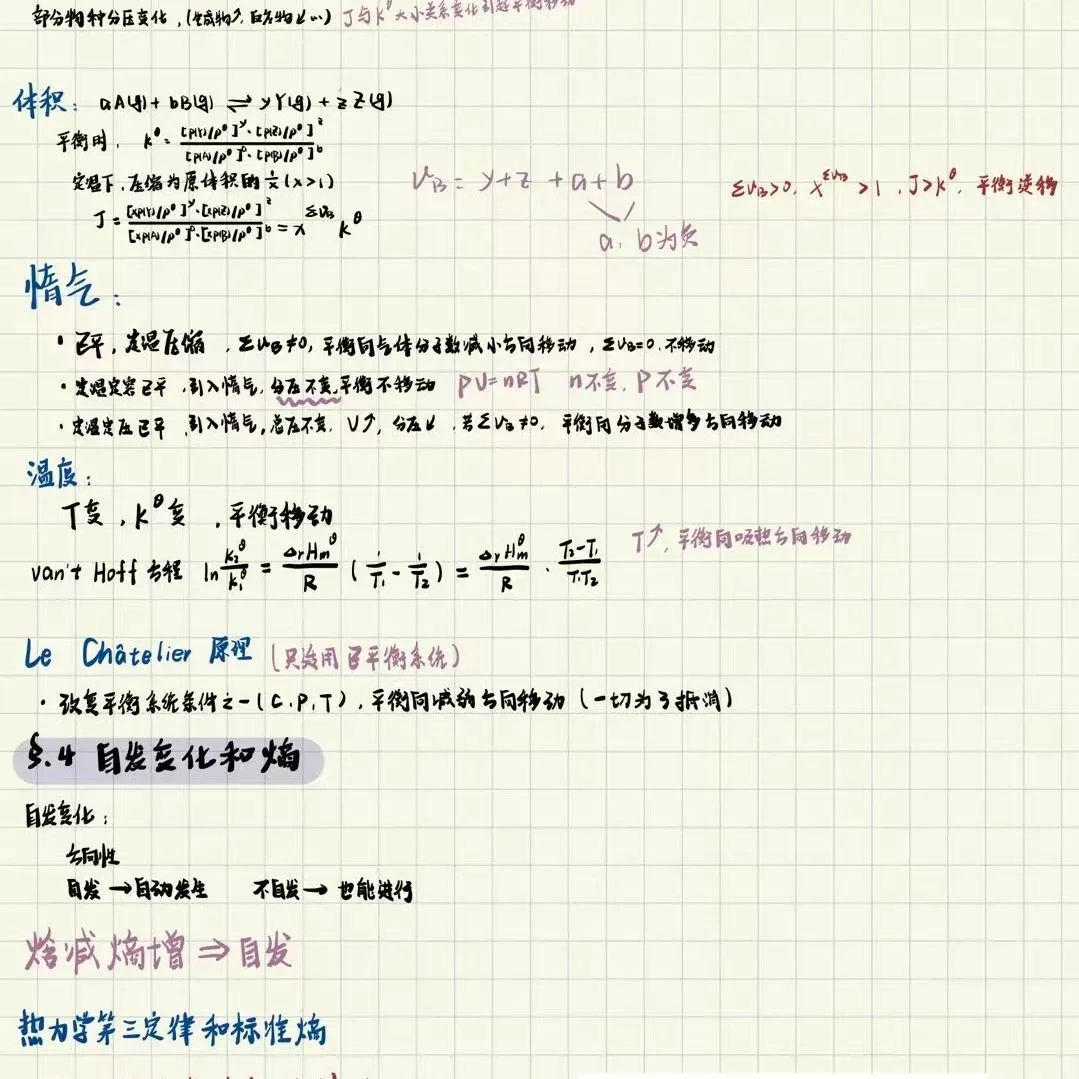 部分物种分压变化,(生成物↗, 反应物↙...) J与K^θ大小关系变化引起平衡移动
体积: aA(g) + bB(g) ⇌ yY(g) + zZ(g)
平衡时, K^θ = [p(Y)/p^θ]^y·[p(Z)/p^θ]^z / [p(A)/p^θ]^a·[p(B)/p^θ]^b
定温下, 压缩为原体积的 1/x (x>1)
ν_B = y+z +a+b
Σν_B>0, x^Σν_B >1, J>K^θ, 平衡逆移
J = [xp(Y)/p^θ]^y·[xp(Z)/p^θ]^z / [xp(A)/p^θ]^a·[xp(B)/p^θ]^b = x^Σν_B K^θ
a, b为负
惰气:
· 已平, 定温压缩, Σν_B≠0, 平衡向气体分子数减小方向移动, Σν_B=0, 不移动
· 定温定容已平, 引入惰气, 分压不变, 平衡不移动 PV=nRT n不变, P不变
· 定温定压已平, 引入惰气, 总压不变, V↗, 分压↙, 若Σν_B≠0, 平衡向分子数增多方向移动
温度:
T变, K^θ变, 平衡移动
T↗, 平衡向吸热方向移动
van't Hoff 方程 ln K₂^θ/K₁^θ = ΔrHm^θ/R (1/T₁ - 1/T₂) = ΔrHm^θ/R · T₂-T₁/T₁T₂
Le Châtelier 原理 (只适用已平衡系统)
· 改变平衡系统条件之一(C, P, T), 平衡向减弱方向移动 (一切为了抵消)
§.4 自发变化和熵
自发变化:
方向性
自发 → 自动发生 不自发 → 也能进行
焓减熵增 ⇒ 自发
热力学第三定律和标准熵